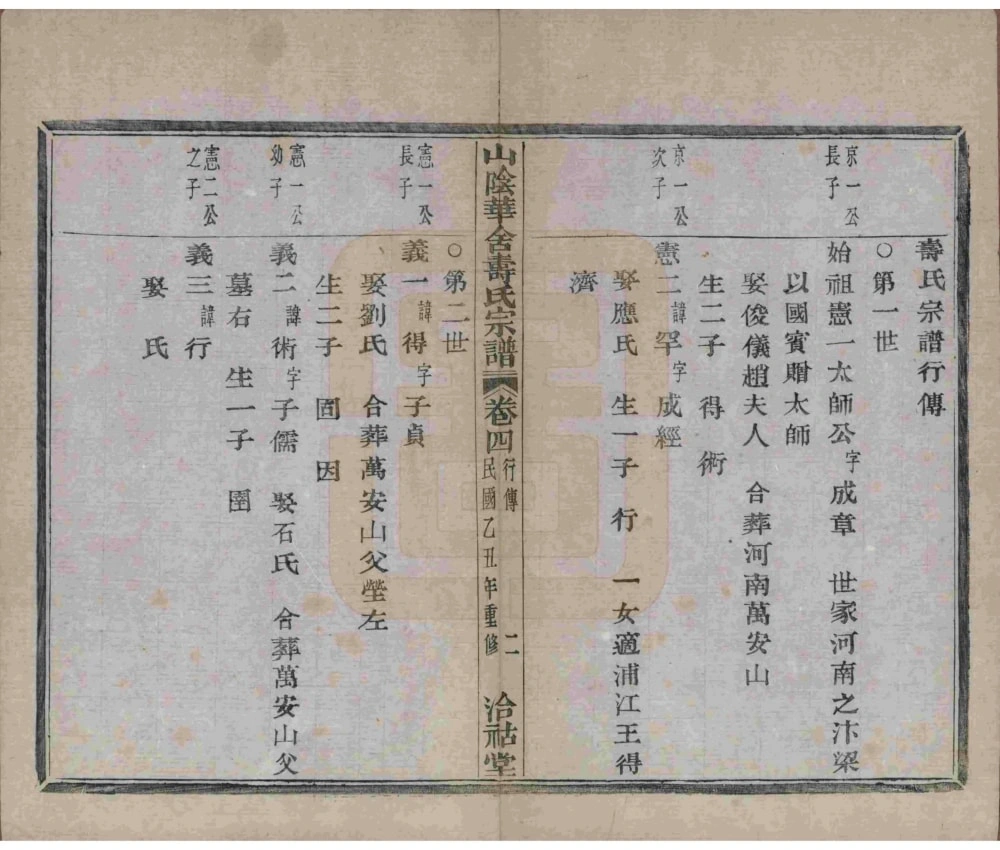 壽氏宗譜行傳
○第一世
京一公
長子
始祖憲一太師公字成章 世家河南之汴梁
以國賓贈太師
娶俊儀趙夫人 合葬河南萬安山
生二子 得 術
京一公
次子
憲二諱罕字成經
娶應氏 生一子 行 一女適浦江王得
濟
山陰華舍壽氏宗譜 卷四 行傳 民國乙丑年重修 二 洽祜堂
○第二世
憲一公
長子
義一諱得字子貞
娶劉氏 合葬萬安山父塋左
生二子 固 因
憲一公
幼子
義二諱術字子儒 娶石氏 合葬萬安山父
墓右 生一子 圍
憲二公
之子
義三諱行
娶 氏